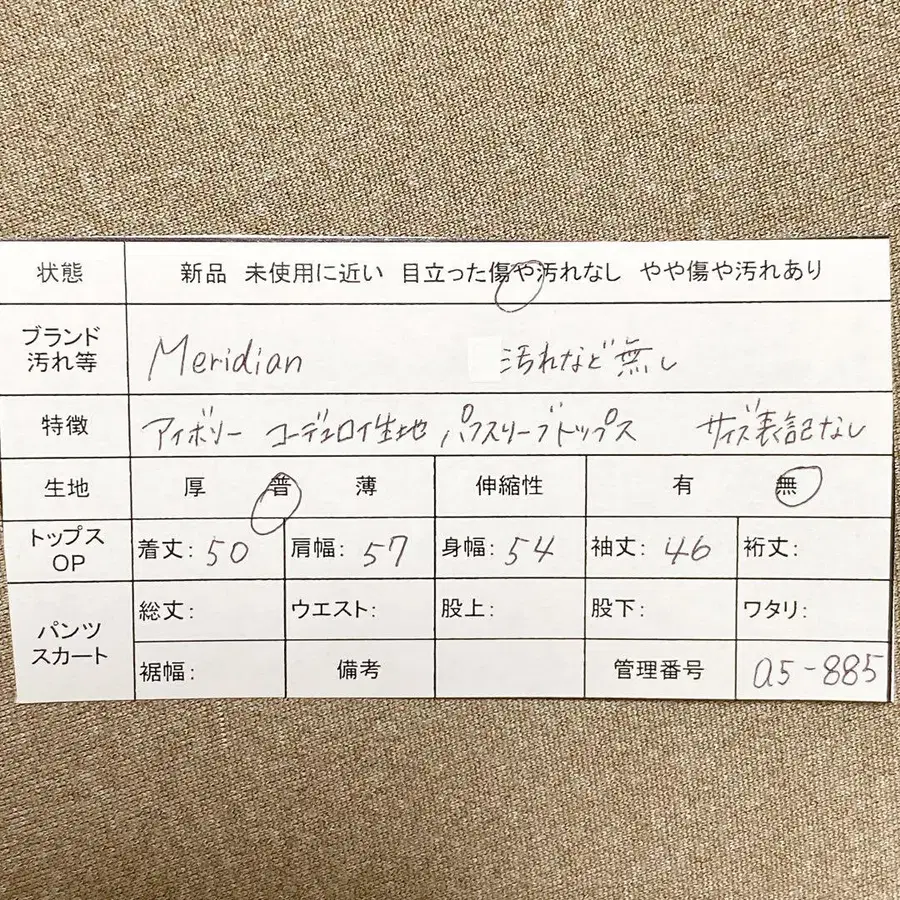 状態 新品 未使用に近い 目立った傷や汚れなし やや傷や汚れあり
ブランド
汚れ等 Meridian 汚れなど無し
特徴 アイボリー コーデュロイ生地 パフスリーブトップス サイズ表記なし
生地 厚 普 薄 伸縮性 有 無
トップス
OP 着丈: 50 肩幅: 57 身幅: 54 袖丈: 46 裄丈:
パンツ
スカート 総丈: ウエスト: 股上: 股下: ワタリ:
裾幅: 備考 管理番号 a5-885